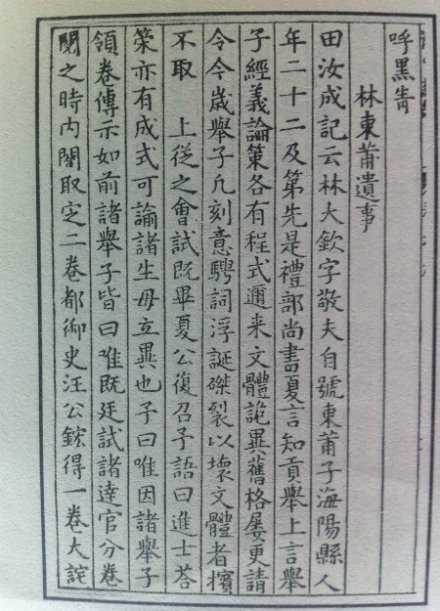 呼黑青
林東莆遺事
田汝成記云林大欽字敬夫自號東莆子海陽縣人
年二十二及第先是禮部尚書夏言知貢舉上言舉
子經義論策各有程式邇來文體詭異舊格屡更請
令今歲舉子凡刻意騁詞浮誕磔裂以壞文體者擯
不取 上從之會試既畢夏公復召予語曰進士荅
策亦有成式可論諸生毋立異也予曰唯因諸舉子
領卷傳示如前諸舉子皆曰唯既廷試諸達官分卷
閱之時内閣取定二卷都御史汪公鋐得一卷大詫